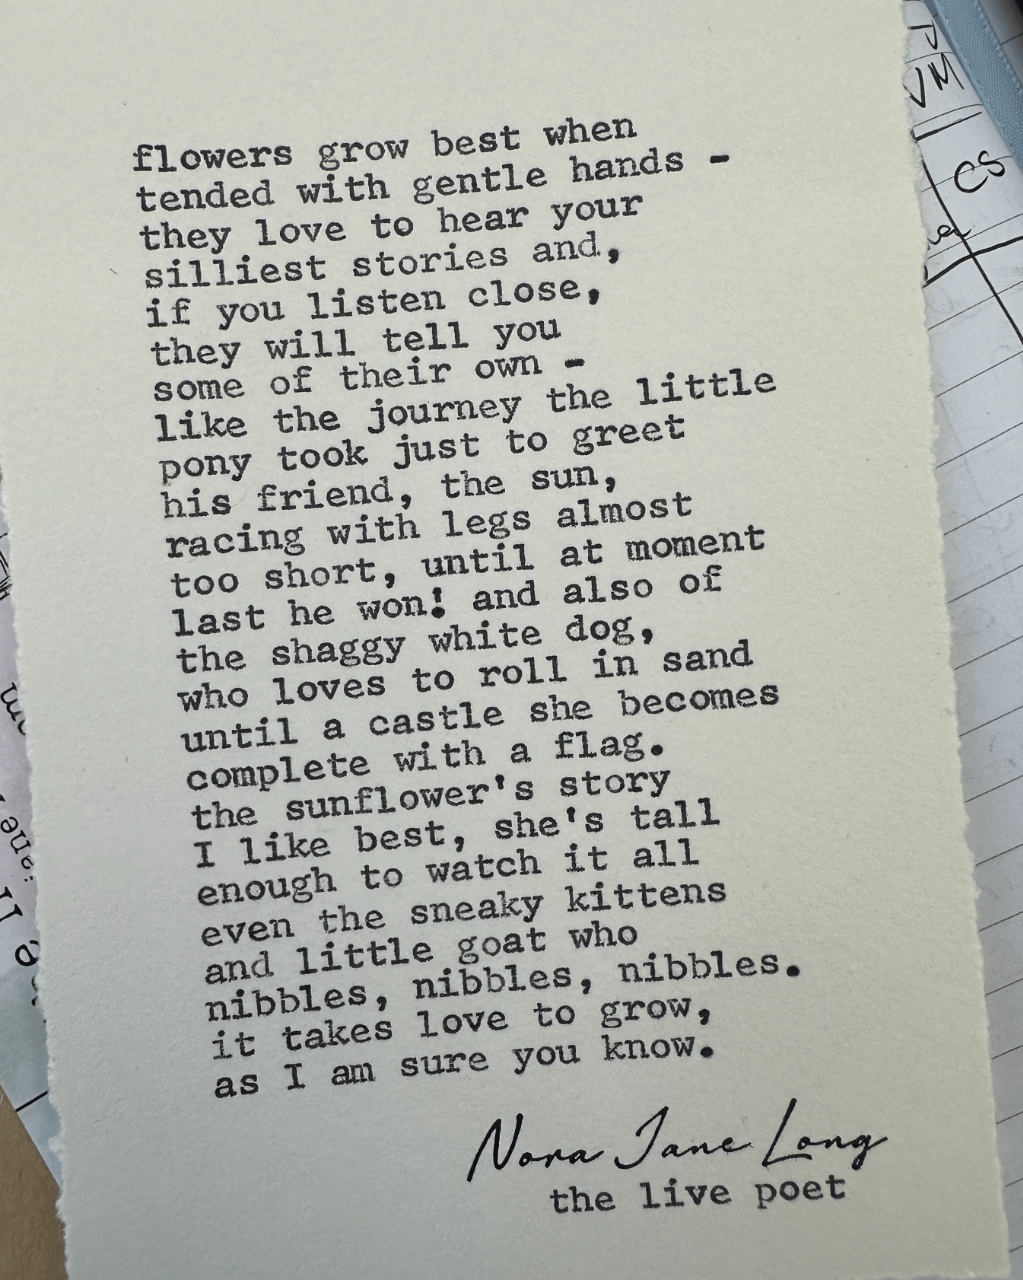 flowers grow best when
tended with gentle hands -
they love to hear your
silliest stories and,
if you listen close,
they will tell you
some of their own -
like the journey the little
pony took just to greet
his friend, the sun,
racing with legs almost
too short, until at moment
last he won! and also of
the shaggy white dog,
who loves to roll in sand
until a castle she becomes
complete with a flag.
the sunflower's story
I like best, she's tall
enough to watch it all
even the sneaky kittens
and little goat who
nibbles, nibbles, nibbles.
it takes love to grow,
as I am sure you know.
Nora Jane Long
the live poet
CS